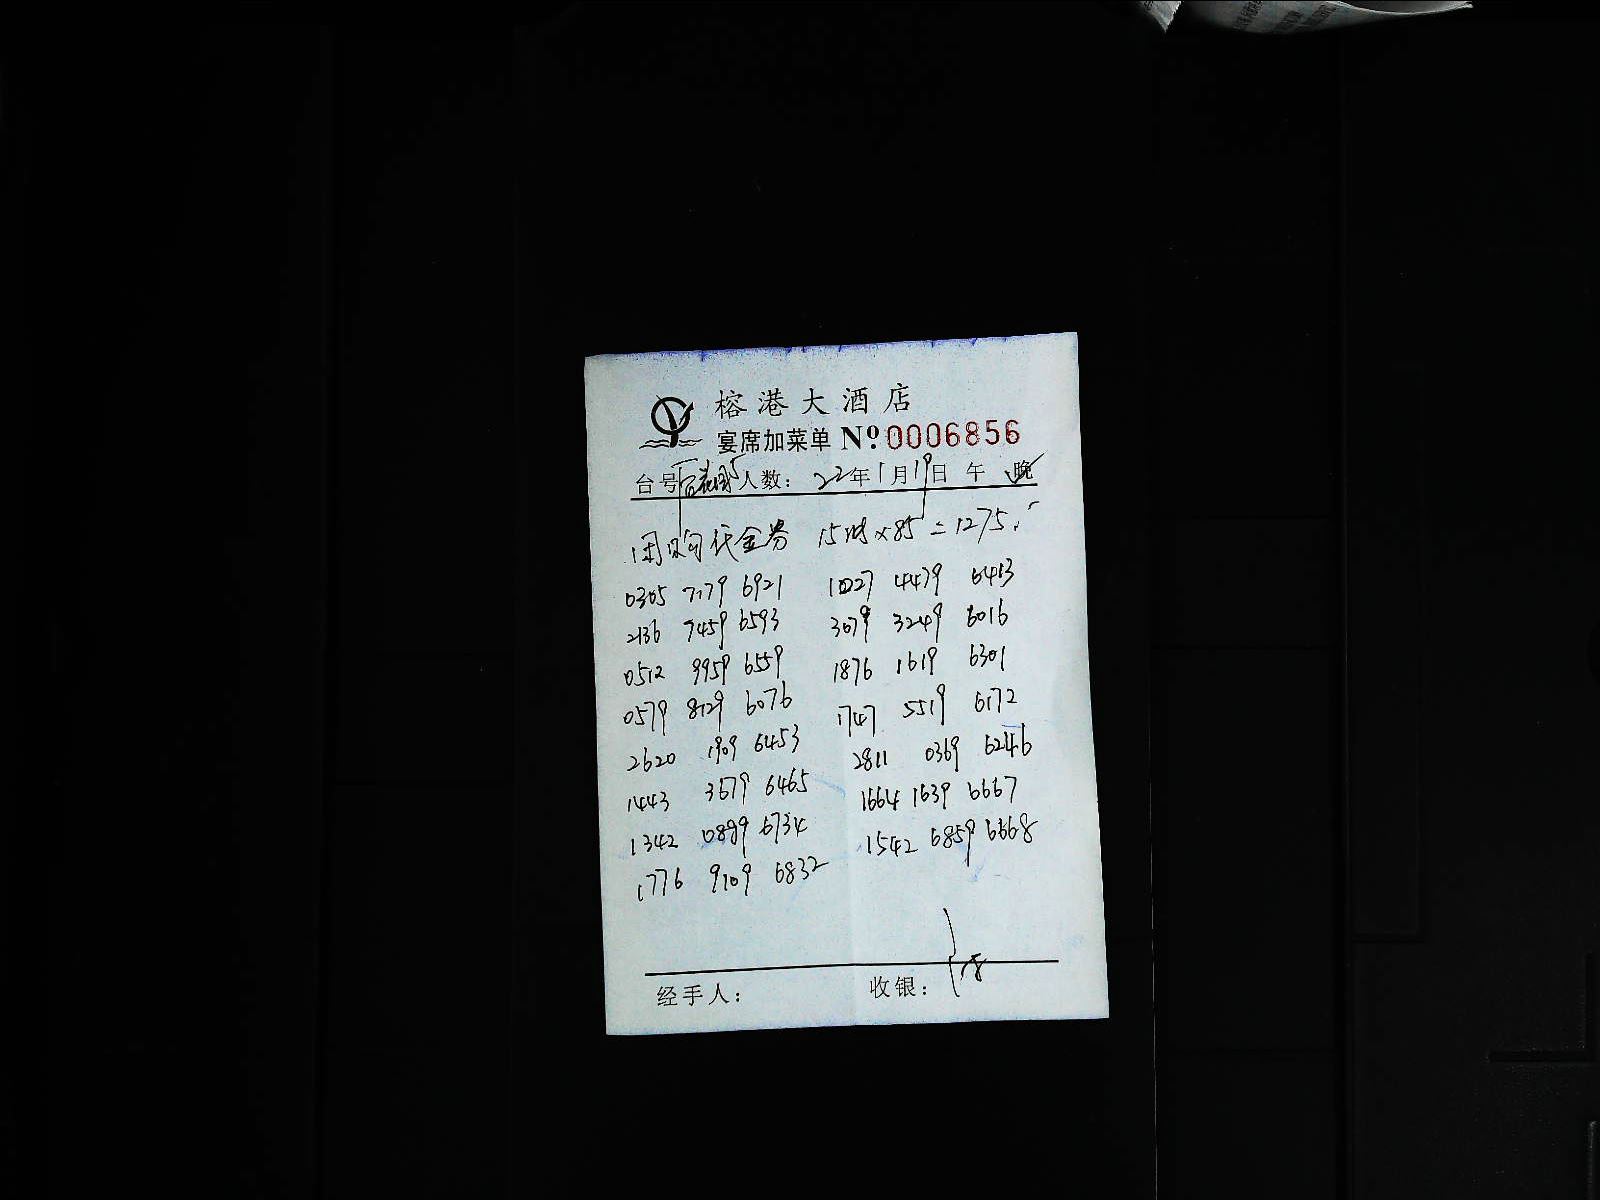 榕港大酒店
宴席加菜单 Nº 0006856
台号 百花园5 人数: 22年1月19日 午 晚
团购代金券 15张×85=1275.
0305 7179 6921 1027 4479 6413
2136 9459 6593 3079 3249 6016
0512 9959 6559 1876 1619 6301
0579 8129 6076 1747 5519 6172
2620 1909 6453 2811 0369 6246
1443 3679 6465 1664 1639 6667
1342 0899 6734 1542 6859 6668
1776 9109 6832
经手人: 收银: